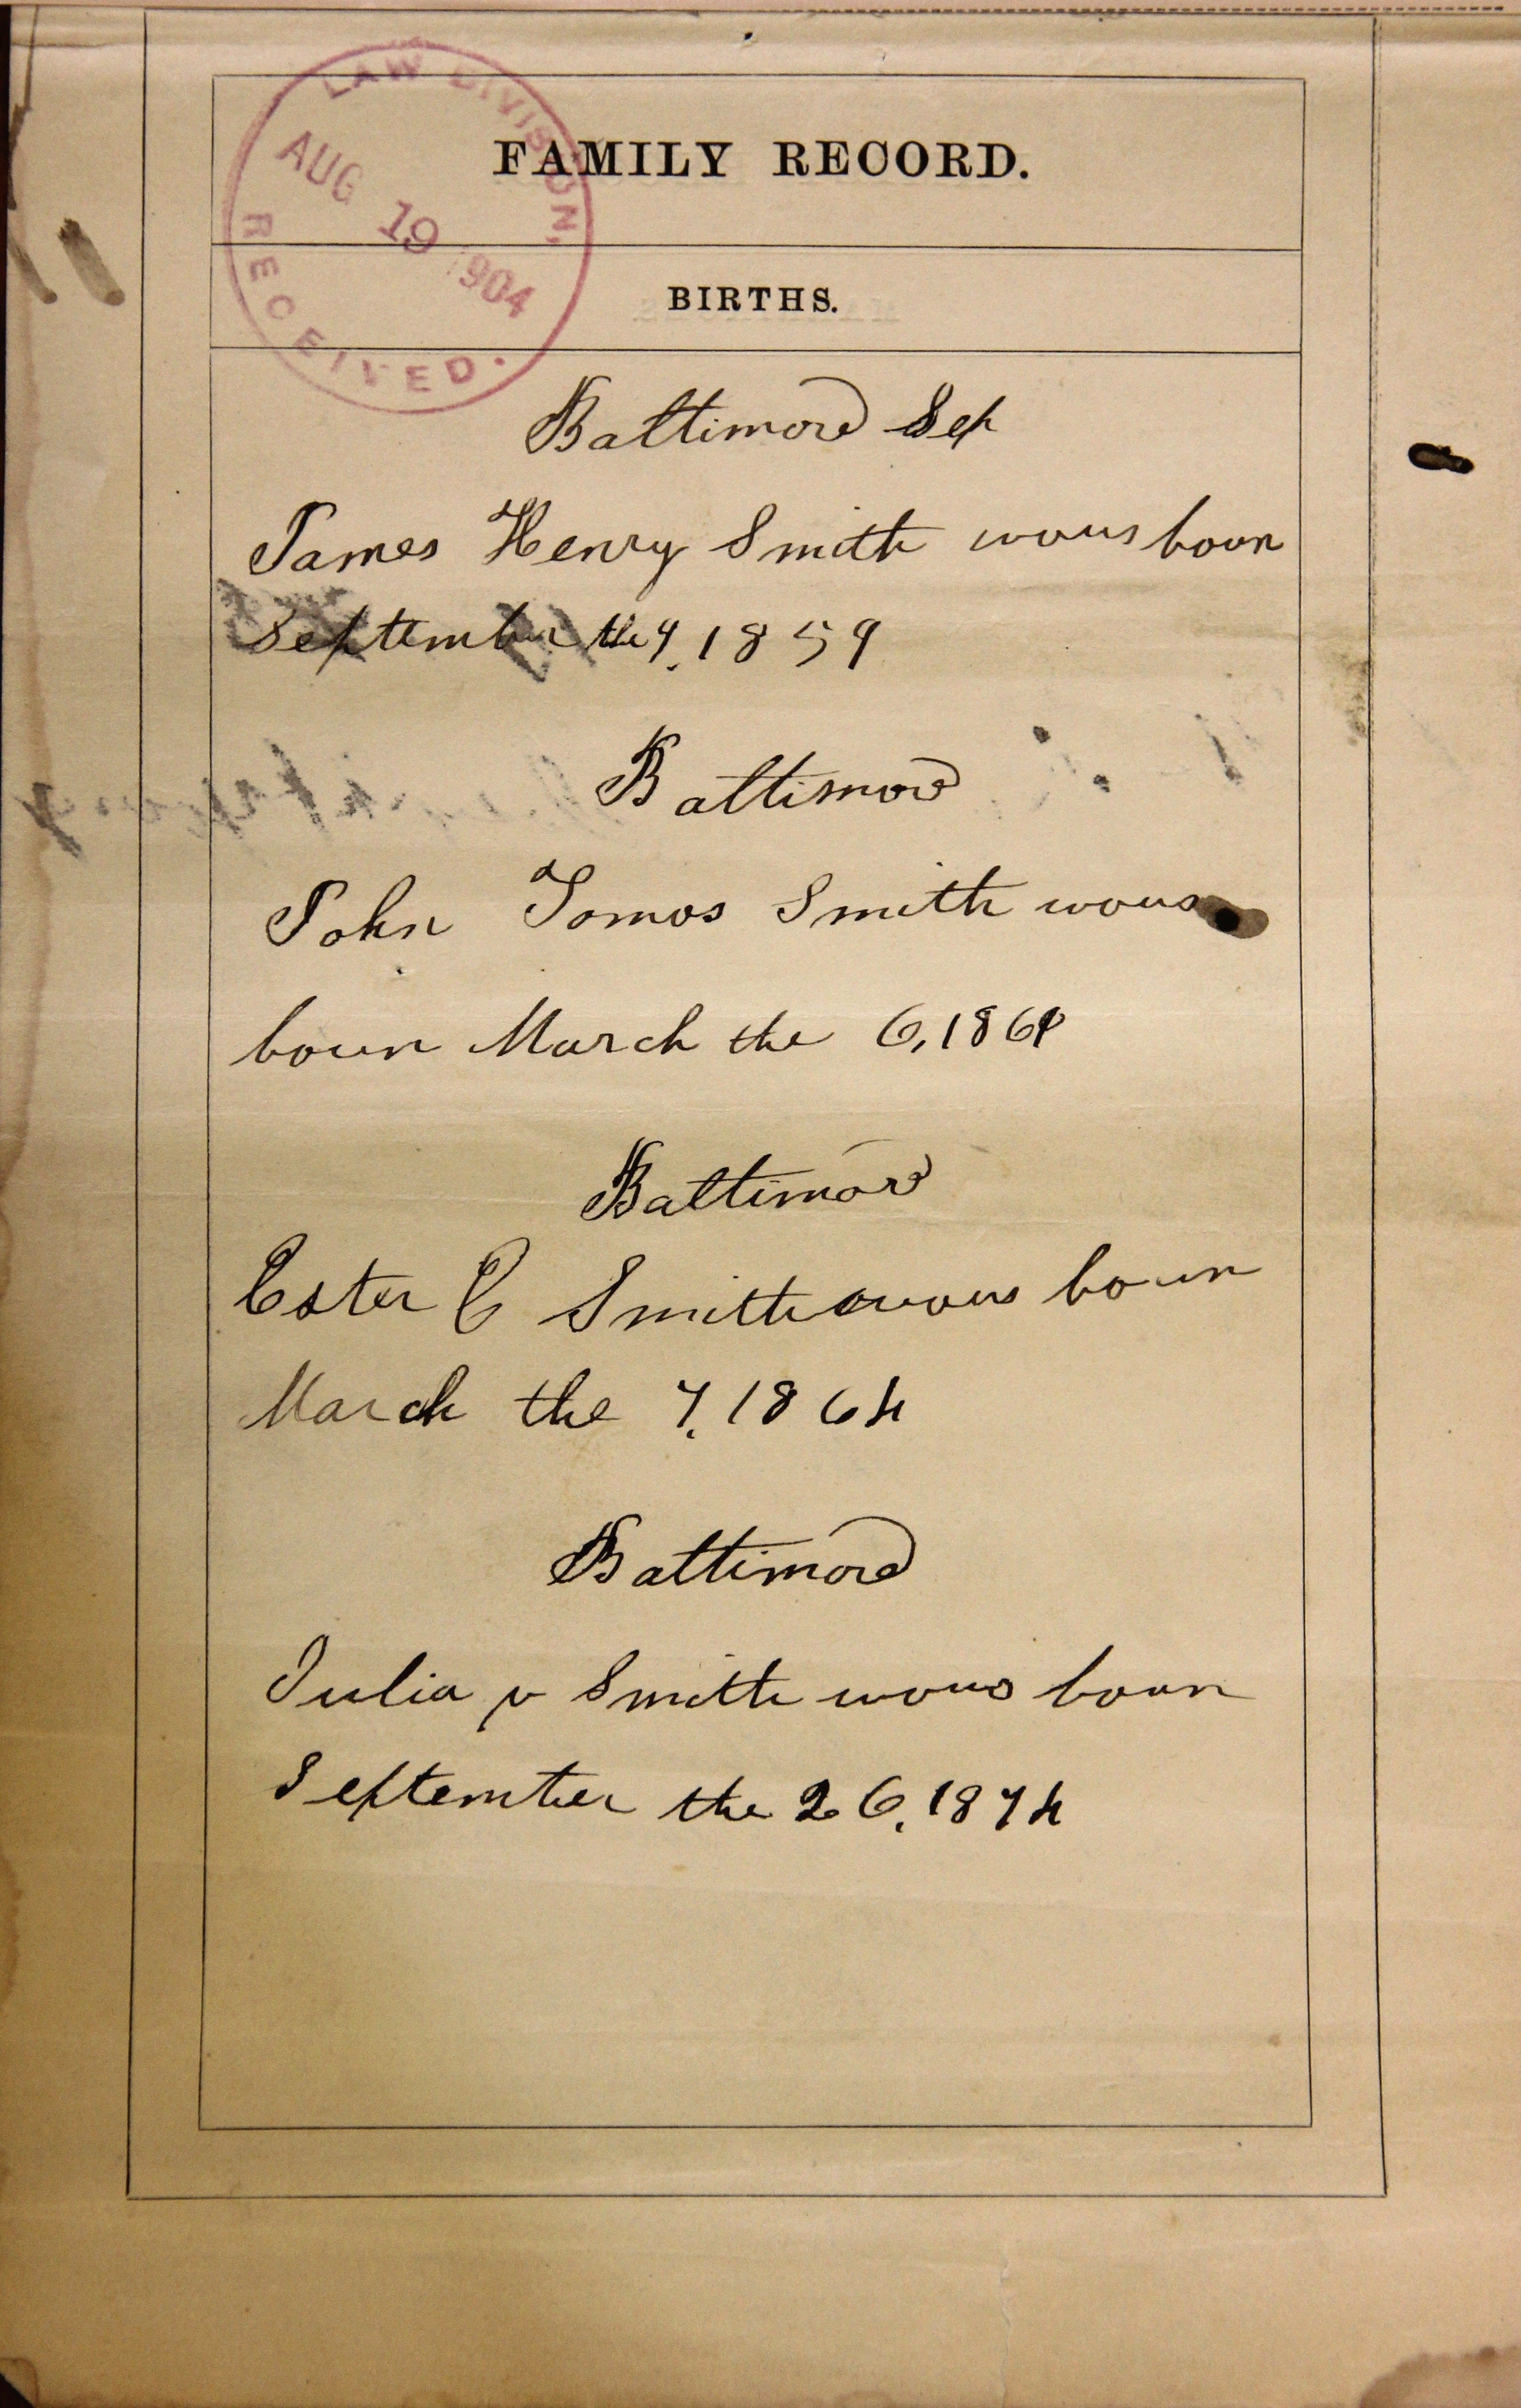 LAW DIVISION,
AUG 19 1904
RECEIVED.
FAMILY RECORD.
BIRTHS.
Baltimore Sep
James Henry Smith wous boun
September the 9, 1859
Baltimore
John Tomos Smith wous
boun March the 6, 1861
Baltimore
Ester C Smith wous boun
March the 7, 1864
Baltimore
Julia v Smith wous boun
September the 26, 1874